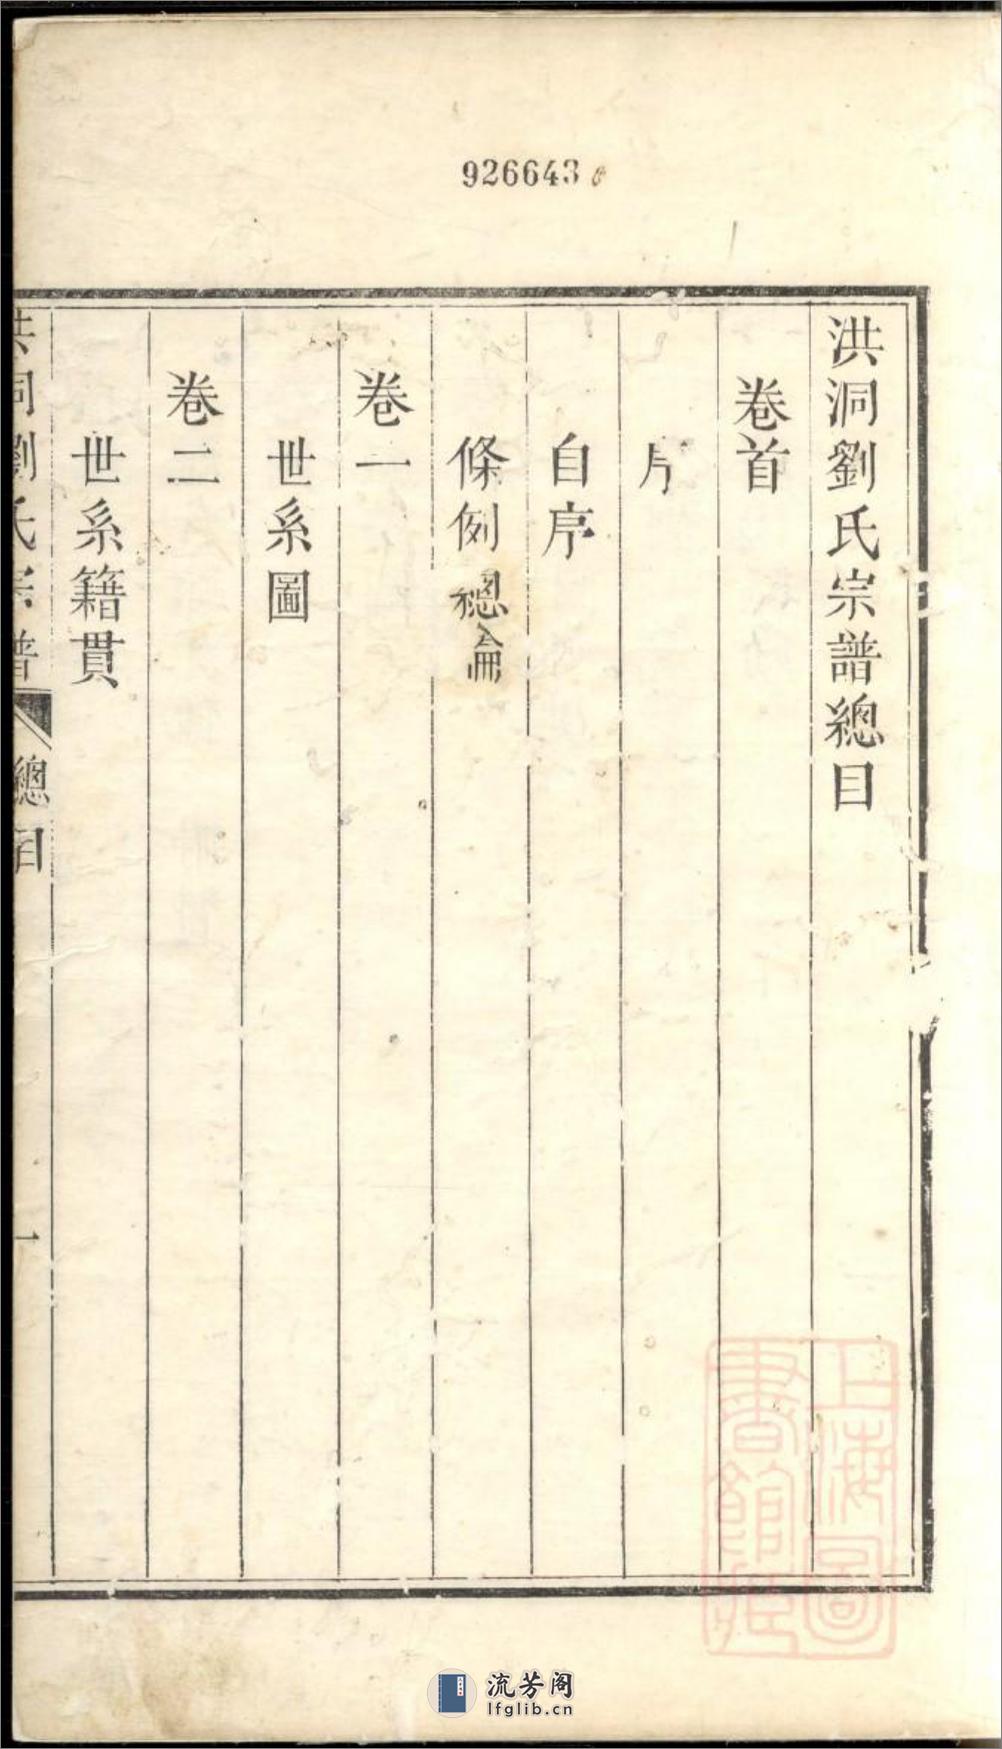 926643
洪洞劉氏宗譜總目
卷首
序
自序
條例總論
卷一
世系圖
卷二
世系籍貫
洪洞劉氏宗譜
總目
一
上海圖書館藏
流芳阁
lfglib.cn